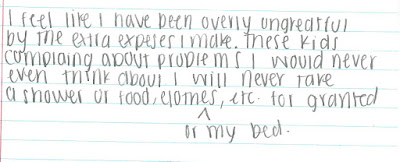 I feel like I have been overly ungreatful
by the extra expeses I make. These kids
complaing about problems I would never
even think about I will never take
a shower or food, clothes, etc. for granted
^
or my bed.